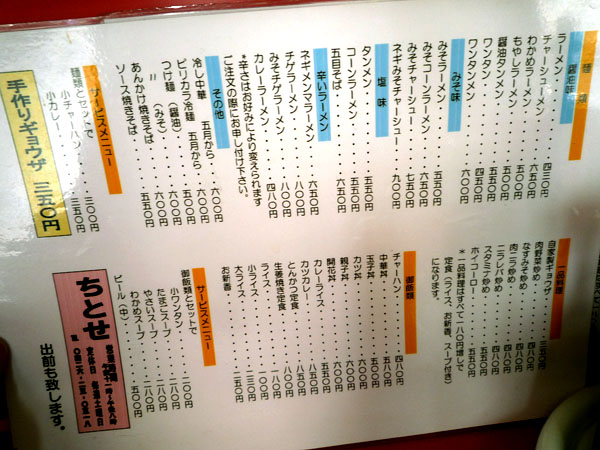 麺類
醤油味
ラーメン・・・・・・四三〇円
チャーシューメン・・・六五〇円
わかめラーメン・・・・五五〇円
もやしラーメン・・・・五五〇円
醤油タンメン・・・・・五五〇円
ワンタン・・・・・・四五〇円
ワンタンメン・・・・・六〇〇円
みそ味
みそラーメン・・・・・五五〇円
みそコーンラーメン・・六五〇円
みそチャーシュー・・・七五〇円
ネギみそチャーシュー・・九〇〇円
塩味
タンメン・・・・・・五五〇円
五目そば・・・・・・六五〇円
辛いラーメン
ネギメンマラーメン・・六五〇円
チゲラーメン・・・・・八〇〇円
みそチゲラーメン・・・八〇〇円
カレーラーメン・・・・四八〇円
*辛さはお好みにより変えられます
ご注文の際にお申し付け下さい。
その他
冷し中華 五月から・・六〇〇円
ピリカラ冷麺 五月から
つけ麺(醤油)・・・・六〇〇円
〃(みそ)・・・・六〇〇円
あんかけ焼きそば・・・
ソース焼きそば・・・・五五〇円
サービスメニュー
麺類とセットで
小チャーハン・・・三〇〇円
小カレー・・・・・三五〇円
手作りギョウザ 三五〇円
一品料理
自家製ギョウザ・・・三五〇円
肉野菜炒め
なすみそ炒め・・・・四八〇円
肉ニラ炒め・・・・・四八〇円
ニラレバ炒め・・・・四八〇円
スタミナ炒め・・・・五五〇円
ホイコーロー・・・・五五〇円
*一品料理はすべて一八〇円増しで
定食(ライス、お新香、スープ付き)
になります。
御飯類
チャーハン・・・・・四八〇円
中華丼・・・・・・五五〇円
玉子丼・・・・・・五〇〇円
カツ丼・・・・・・六五〇円
親子丼・・・・・・五五〇円
開花丼・・・・・・五五〇円
カレーライス・・・・五五〇円
カツカレー・・・・・八五〇円
とんかつ定食・・・・八〇〇円
生姜焼き定食・・・・八〇〇円
ライス・・・・・・一八〇円
小ライス・・・・・一三〇円
大ライス・・・・・二三〇円
お新香・・・・・・一五〇円
サービスメニュー
御飯類とセットで
小ワンタン・・・・二〇〇円
たまごスープ・・・・一八〇円
やさいスープ・・・・二八〇円
わかめスープ・・・・一八〇円
ビール(中)・・・・・五〇〇円
ちとせ
定休日 毎週土曜日
出前も致します。